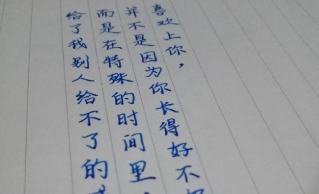 喜欢上你，
并不是因为你长得好不
而是在特殊的时间里
给了我别人给不了的